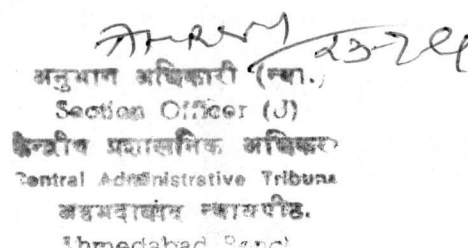 अनुभाग अधिकारी (न्या.)
Section Officer (J)
केन्द्रीय प्रशासनिक अधिकर
Central Administrative Tribuna
अहमदाबाद न्यायपीठ.
Ahmedabad Bench